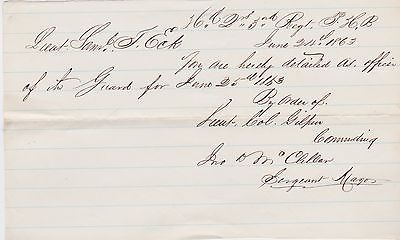 Hd. Qrs. 3rd Regt. P. H. B
June 24th 1863
Lieut. Saml. T. Eck
You are hereby detailed as officer
of the Guard for June 25th 1863
By Order of
Lieut. Col. Gilpin
Comnding
Jno McClellan
Sergeant Major